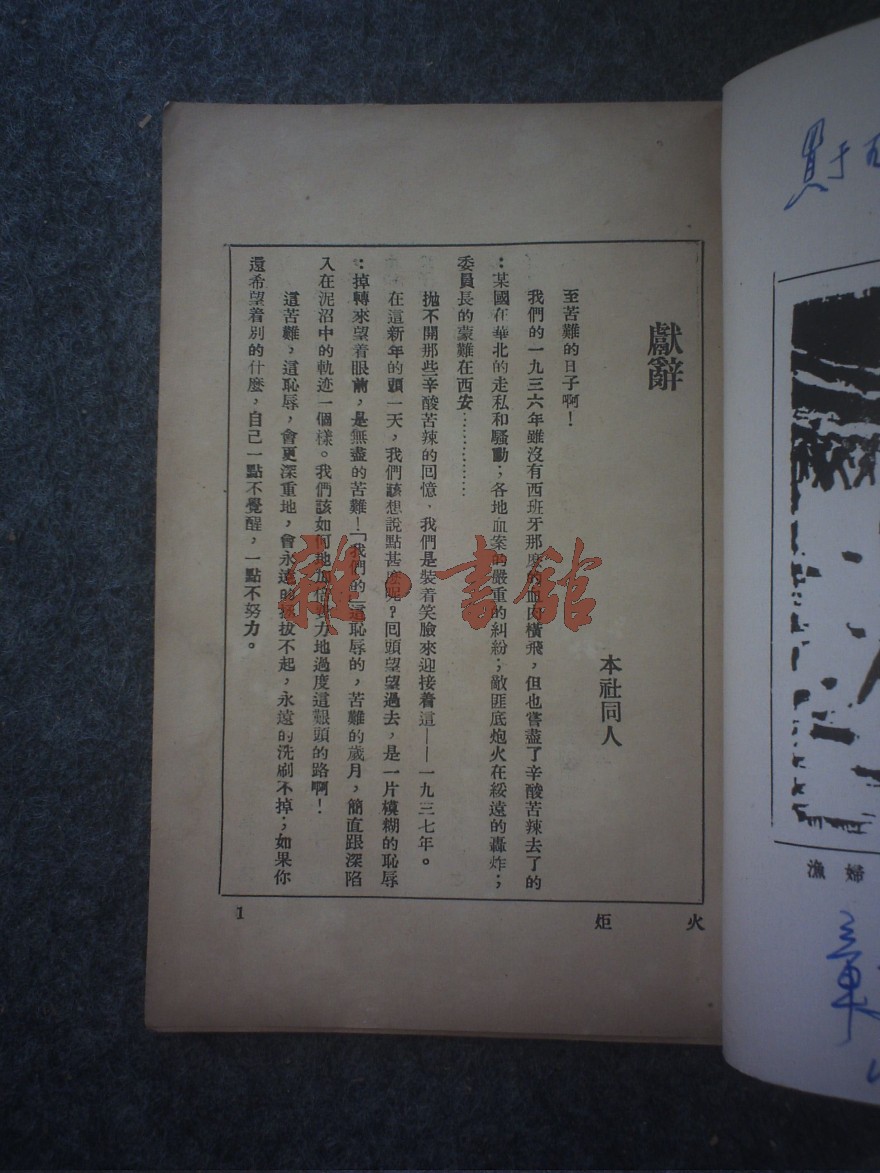 獻辭
本社同人
至苦難的日子啊！
我們的一九三六年雖沒有西班牙那麽的血肉橫飛，但也嘗盡了辛酸苦辣去了的
：某國在華北的走私和騷動；各地血案的嚴重的糾紛；敵匪底炮火在綏遠的轟炸；
委員長的蒙難在西安……………
拋不開那些辛酸苦辣的回憶，我們是裝着笑臉來迎接着這——一九三七年。
在這新年的頭一天，我們該想說點甚麽呢？回頭望望過去，是一片模糊的恥辱
：掉轉來望着眼前，是無盡的苦難！「我們的」這恥辱的，苦難的歲月，簡直跟深陷
入在泥沼中的軌迹一個樣。我們該如何地加倍努力地過度這艱頭的路啊！
這苦難，這恥辱，會更深重地，會永遠的拔不起，永遠的洗刷不掉；如果你
還希望着別的什麽，自己一點不覺醒，一點不努力。
火炬
1
雜·書館
漁婦